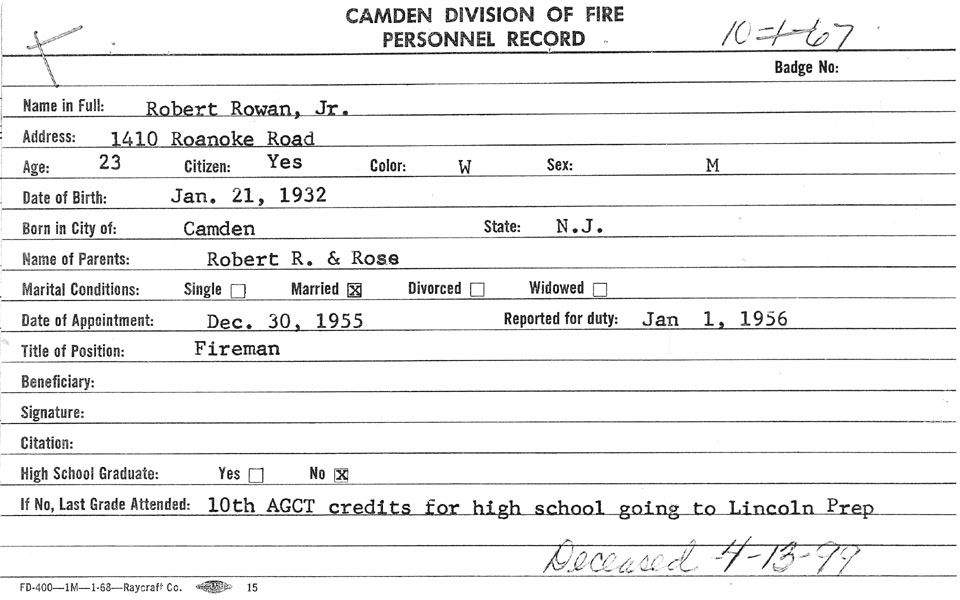 CAMDEN DIVISION OF FIRE
PERSONNEL RECORD
10-1-67
Badge No:
Name in Full: Robert Rowan, Jr.
Address: 1410 Roanoke Road
Age: 23 Citizen: Yes Color: W Sex: M
Date of Birth: Jan. 21, 1932
Born in City of: Camden State: N.J.
Name of Parents: Robert R. & Rose
Marital Conditions: Single ☐ Married ☒ Divorced ☐ Widowed ☐
Date of Appointment: Dec. 30, 1955 Reported for duty: Jan 1, 1956
Title of Position: Fireman
Beneficiary:
Signature:
Citation:
High School Graduate: Yes ☐ No ☒
If No, Last Grade Attended: 10th AGCT credits for high school going to Lincoln Prep
Deceased 4-13-99
FD-400—1M—1-68—Raycraft Co. 15